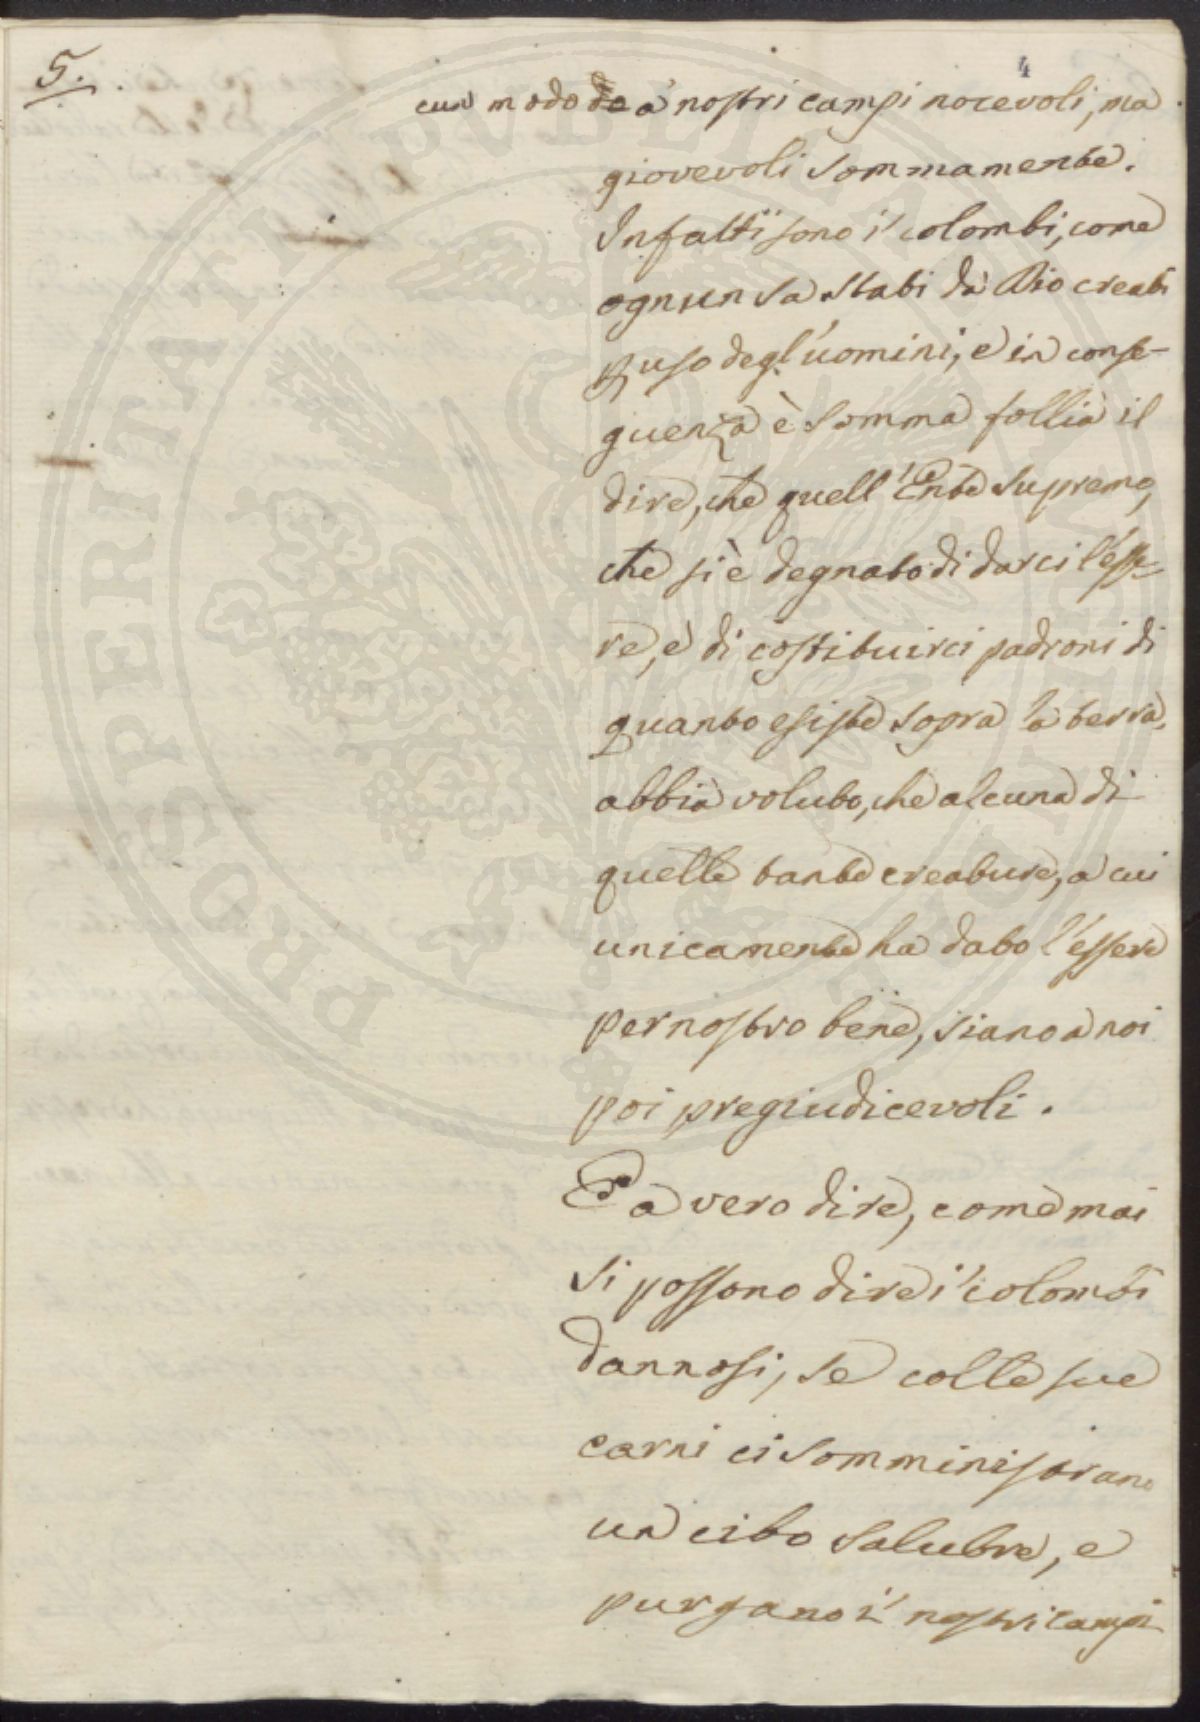 5.
4
cun modo a' nostri campi nocevoli, ma
giovevoli sommamente.
Infatti sono i colombi, come
ognun sa stati da Dio creati
p uso degl'uomini, e in conse-
guenza è somma follia il
dire, che quell'Ente supremo,
che si è degnato di darci l'esse-
re, e di costituirci padroni di
quanto esiste sopra la terra,
abbia voluto, che alcuna di
quelle tante creature, a cui
unicamente ha dato l'essere
per nostro bene, siano a noi
poi pregiudicevoli.
E a vero dire, come mai
si possono dire i colombi
dannosi, se colle sue
carni ci somministrano
un cibo salubre, e
purgano i nostri campi
PROSPERITATI PUBLICAE AUGENDAE